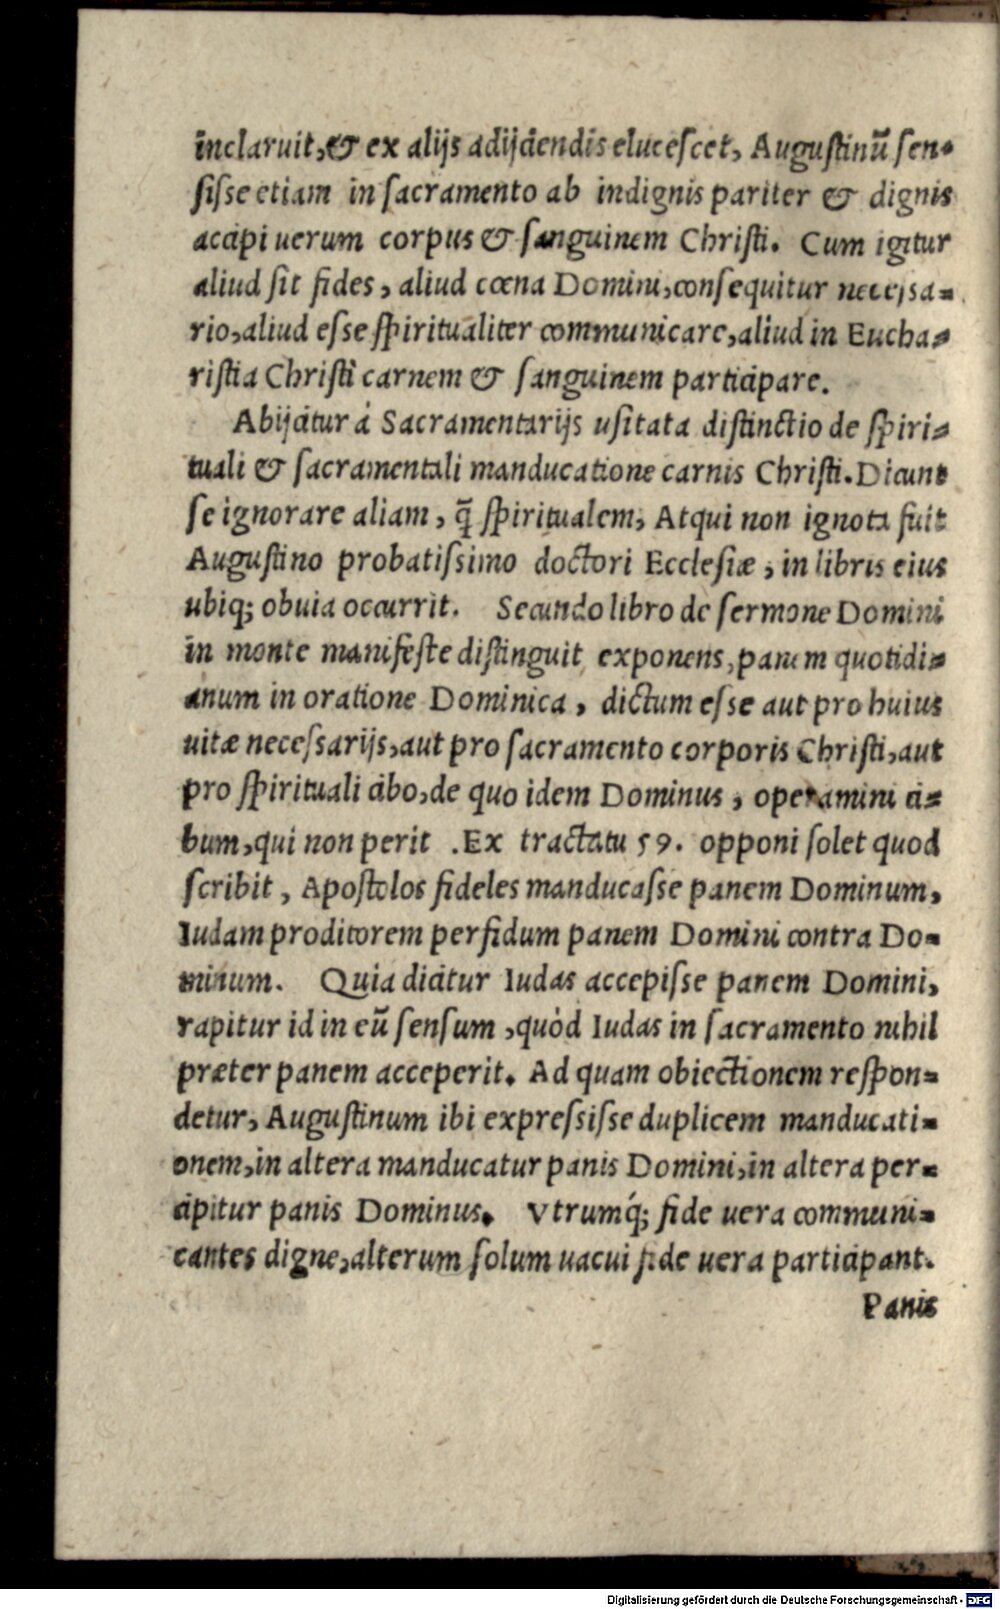 inclaruit, & ex alijs adijciendis elucescet, Augustinū sen-
sisse etiam in sacramento ab indignis pariter & dignis
accipi uerum corpus & sanguinem Christi. Cum igitur
aliud sit fides, aliud cœna Domini, consequitur necessa=
rio, aliud esse spiritualiter communicare, aliud in Eucha=
ristia Christi carnem & sanguinem participare.
Abijcitur á Sacramentarijs usitata distinctio de spiri=
tuali & sacramentali manducatione carnis Christi. Dicunt
se ignorare aliam, q̃ spiritualem, Atqui non ignota fuit
Augustino probatissimo doctori Ecclesiæ, in libris eius
ubiq; obuia occurrit. Secundo libro de sermone Domini
in monte manifeste distinguit exponens, panem quotidi=
anum in oratione Dominica, dictum esse aut pro huius
uitæ necessarijs, aut pro sacramento corporis Christi, aut
pro spirituali cibo, de quo idem Dominus, operamini ci=
bum, qui non perit. Ex tractatu 59. opponi solet quod
scribit, Apostolos fideles manducasse panem Dominum,
Iudam proditorem perfidum panem Domini contra Do=
minum. Quia dicitur Iudas accepisse panem Domini,
rapitur id in eū sensum, quòd Iudas in sacramento nihil
præter panem acceperit. Ad quam obiectionem respon=
detur, Augustinum ibi expressisse duplicem manducati=
onem, in altera manducatur panis Domini, in altera per=
cipitur panis Dominus. Vtrumq́; fide uera communi=
cantes digne, alterum solum uacui fide uera participant.
Panis
Digitalisierung gefördert durch die Deutsche Forschungsgemeinschaft - DFG